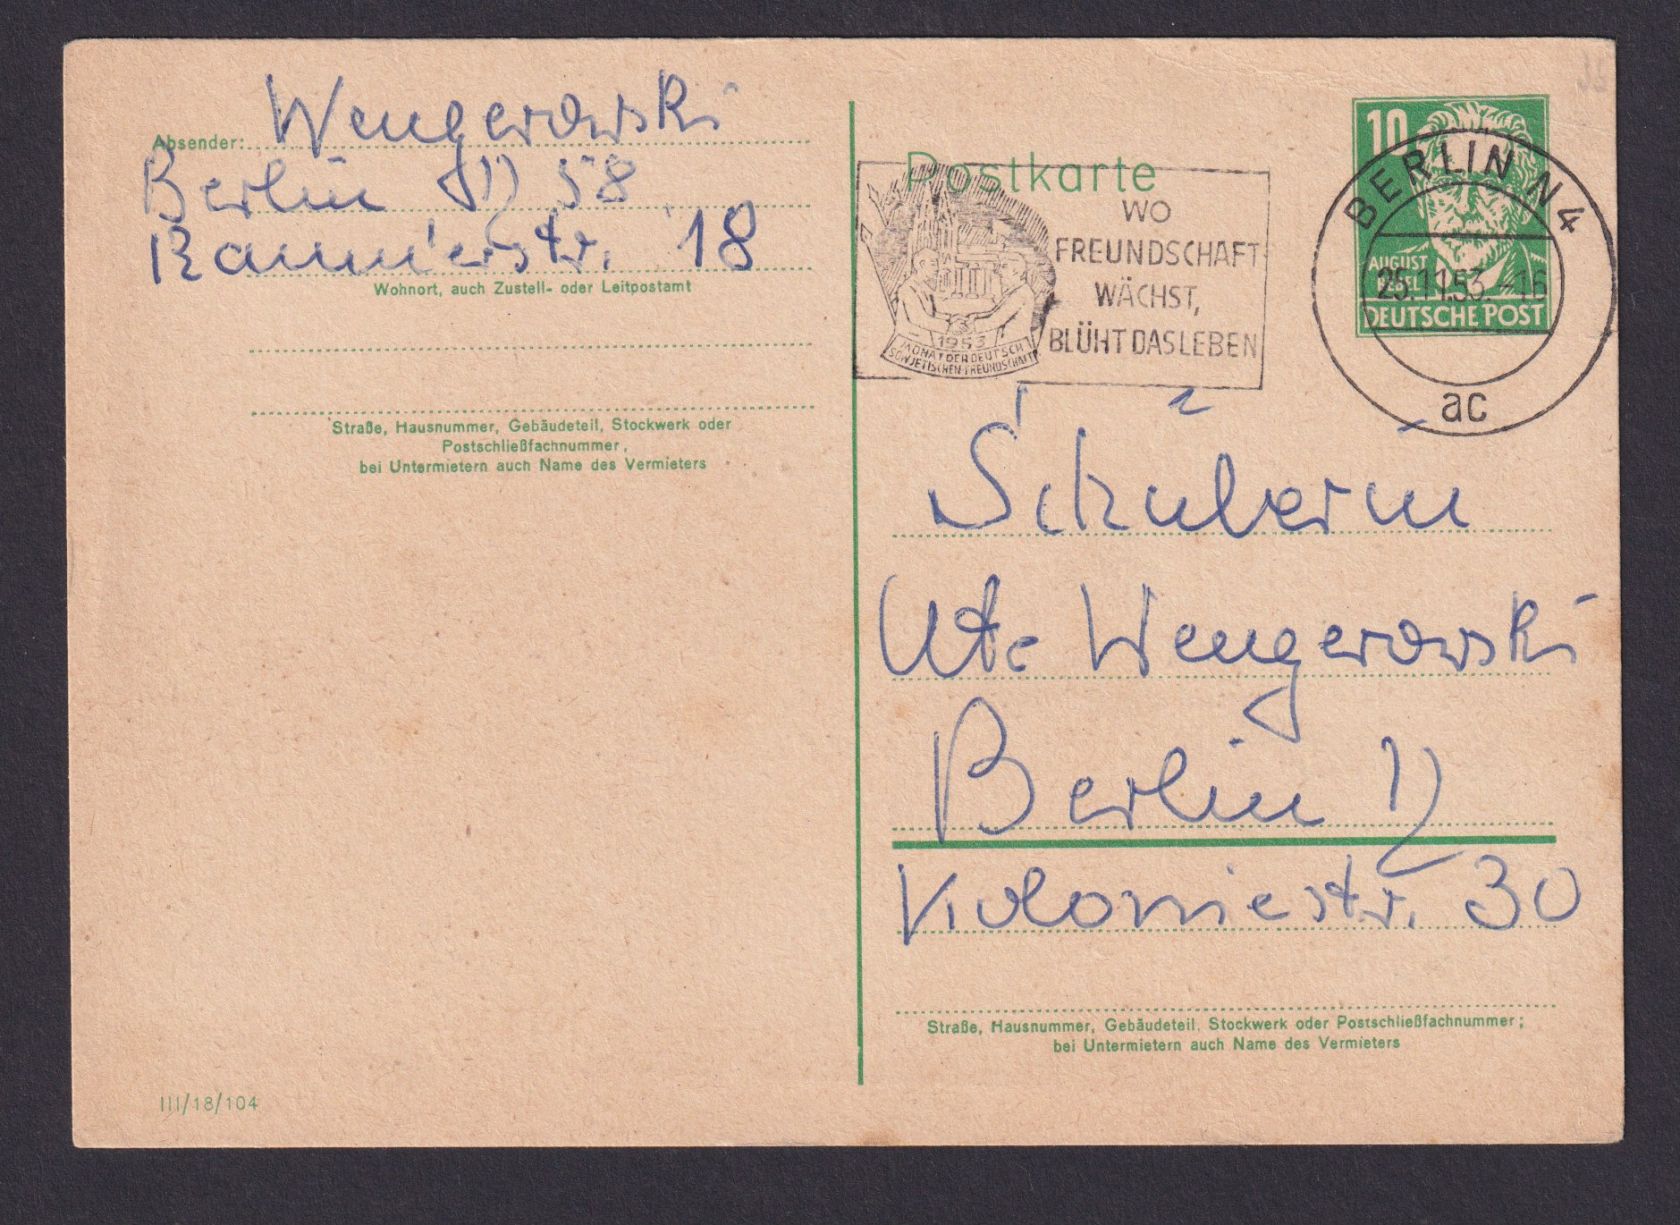 Absender: Wengerowski
Berlin N 58
Raumerstr. 18
Wohnort, auch Zustell- oder Leitpostamt
Straße, Hausnummer, Gebäudeteil, Stockwerk oder
Postschließfachnummer,
bei Untermietern auch Name des Vermieters
III/18/104
Postkarte
WO
FREUNDSCHAFT
WÄCHST,
BLÜHT DAS LEBEN
1953
MONAT DER DEUTSCH
SOWJETISCHEN FREUNDSCHAFT
10
AUGUST
BEBEL
DEUTSCHE POST
BERLIN N4
25.11.53.-16
ac
Schülerin
Ute Wengerowski
Berlin N
Koloniestr. 30
Straße, Hausnummer, Gebäudeteil, Stockwerk oder Postschließfachnummer;
bei Untermietern auch Name des Vermieters